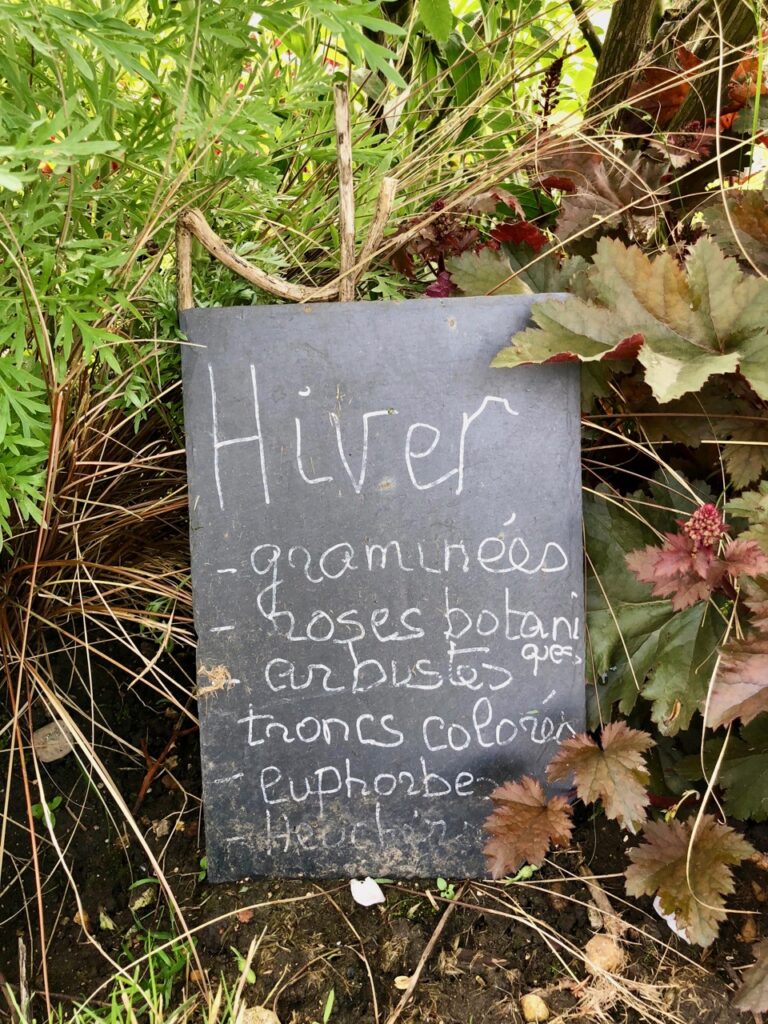 Hiver
- graminées
- roses botani
ques
- arbustes
troncs colorés
- euphorbes
- Heuchères